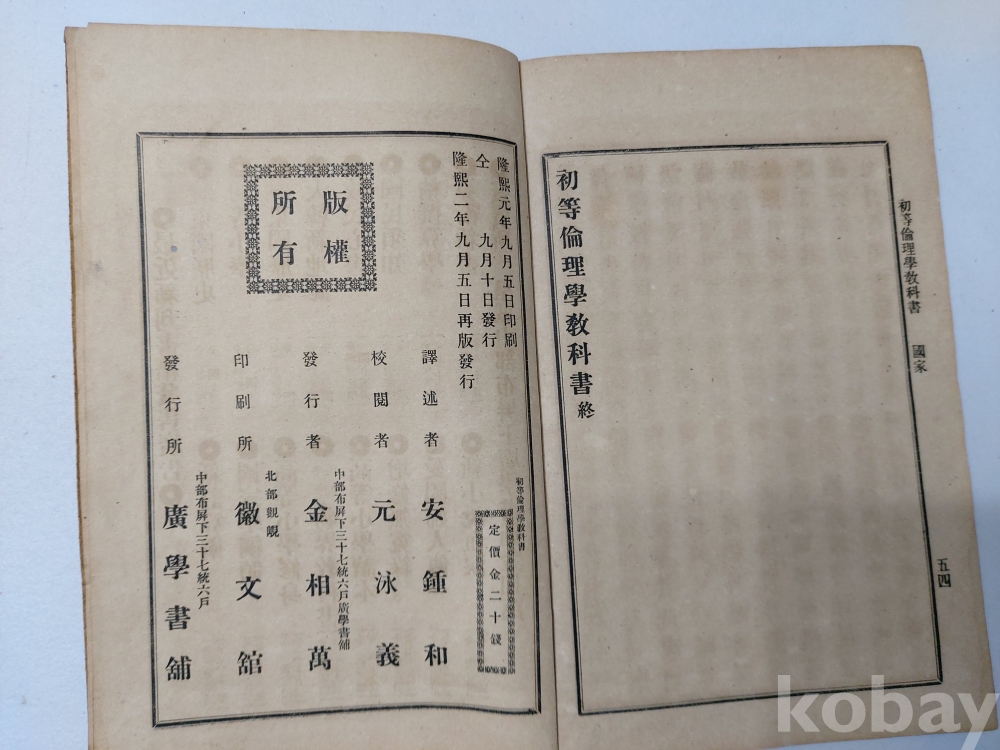 初等倫理學教科書 國家
五四
初等倫理學教科書 終
初等倫理學教科書
定價金二十錢
隆熙元年九月五日印刷
仝 九月十日發行
隆熙二年九月五日再版發行
版權
所有
譯述者 安鍾和
校閱者 元泳義
中部布屛下三十七統六戶廣學書舖
發行者 金相萬
北部觀峴
印刷所 徽文舘
中部布屛下三十七統六戶
發行所 廣學書舖
kobay